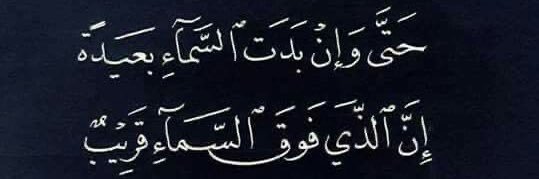 حَتَّى وَإِنْ بَدَت ٱلسَّمَآءِ بَعيدَة
إِنَّ ٱلذَّي فَوقَ ٱلسَّمَآءِ قَرِيبٌ